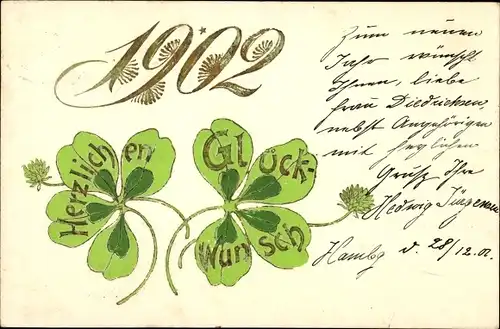 1902
Herzlichen
Glück-
Wunsch
Zum neuen
Jahr wünscht
Ihnen, liebe
Frau Diedrichsen,
nebst Angehörigen
mit herzlichem
Gruß Ihre
Hedwig
Hambg d. 28/12.01.